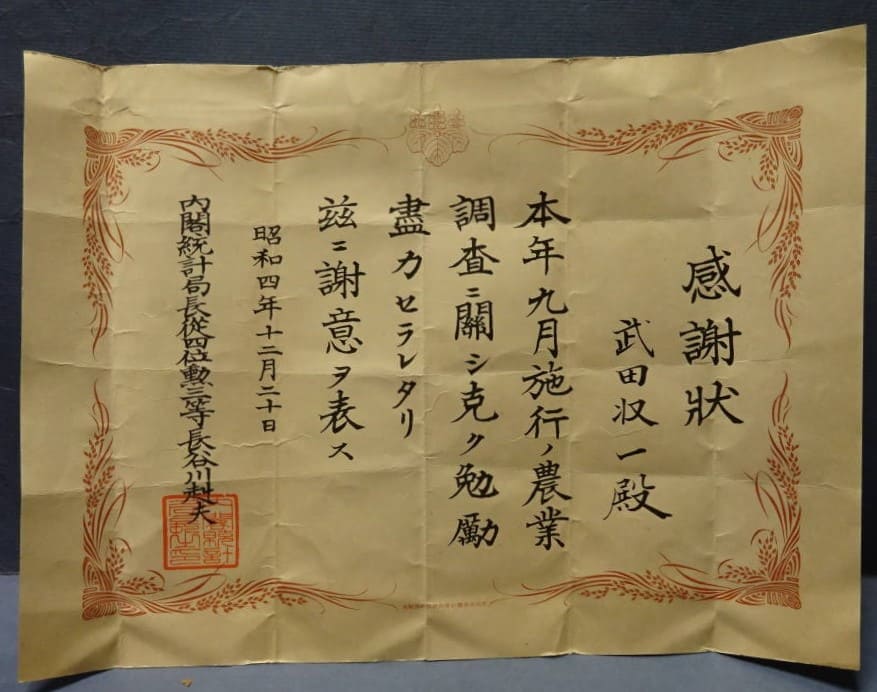 感謝狀
武田収一殿
本年九月施行ノ農業
調査ニ關シ克ク勉勵
盡力セラレタリ
茲ニ謝意ヲ表ス
昭和四年十二月二十日
内閣統計局長從四位勲三等長谷川赳夫